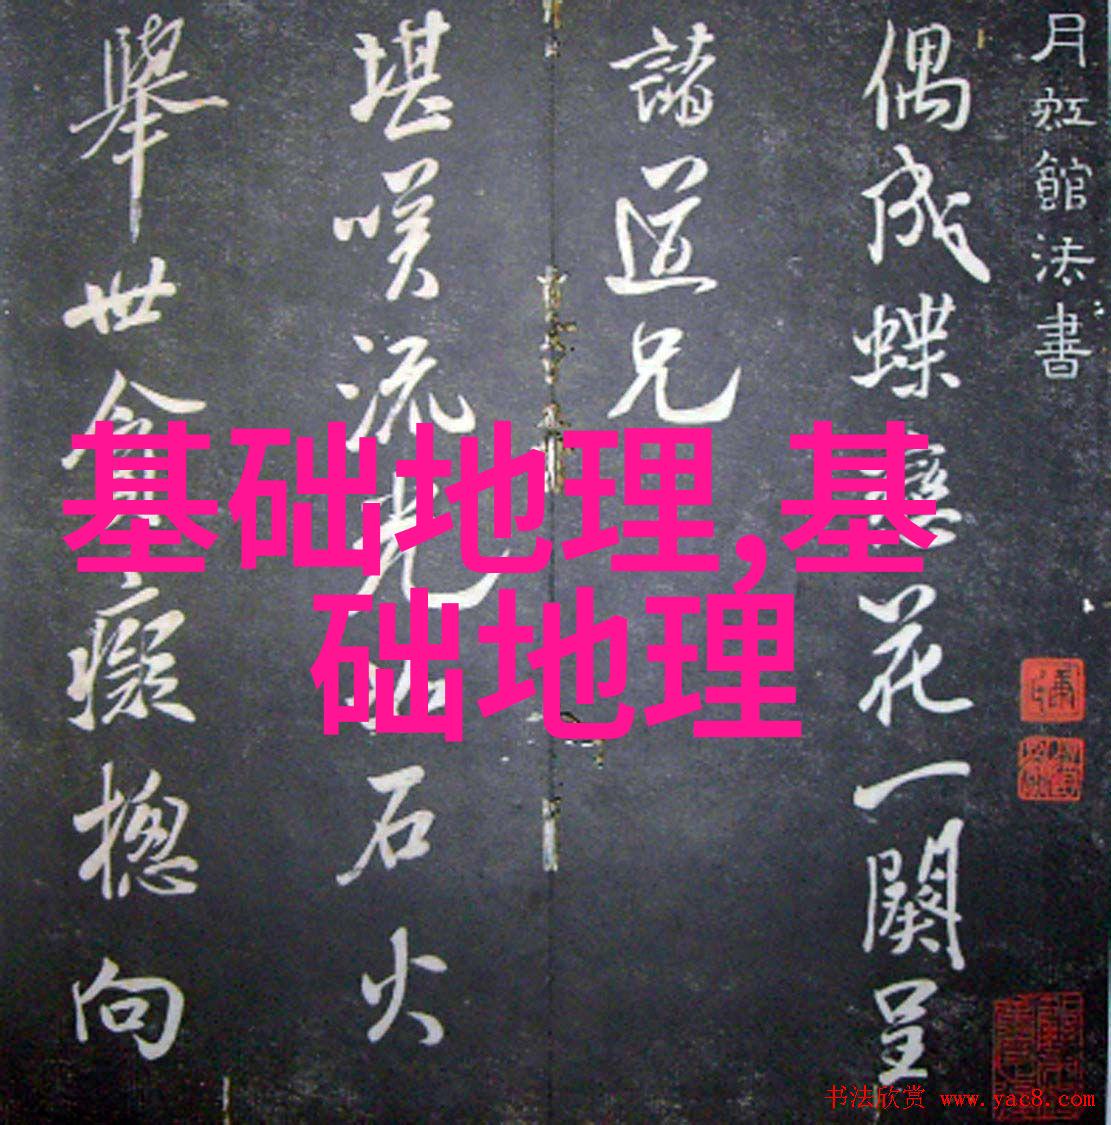 月虹館法書
偶成蝶戀花一闋呈
諸道兄
堪嘆流光如石火
舉世貪癡摠向
基础地理,基
础地理
书法欣赏 www.yac8.com